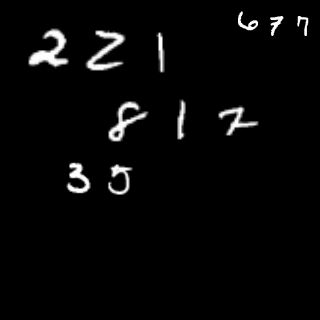 677
221
817
35